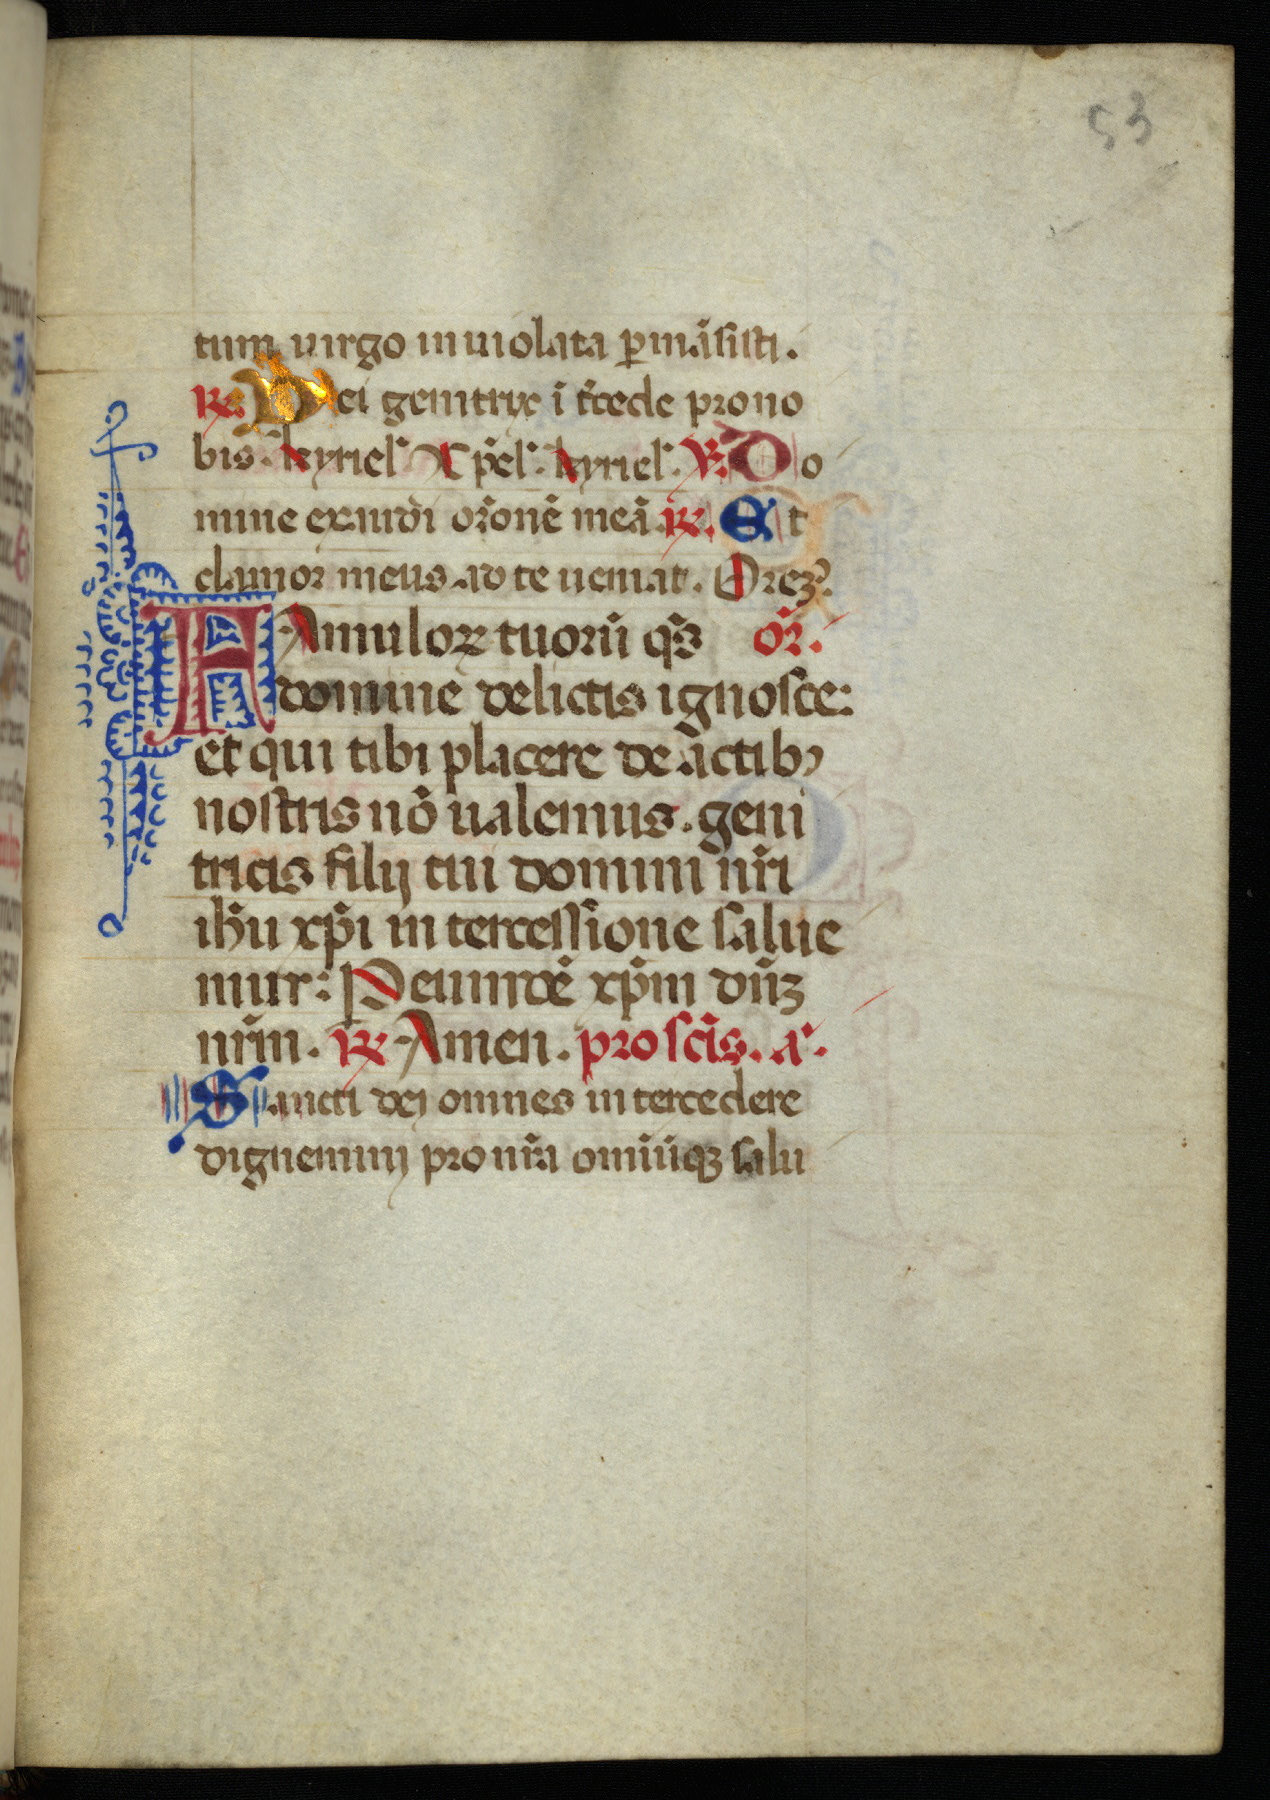 53
tum virgo inuiolata ꝑmãsisti.
℟. Dei genitryx ĩt̃cede prono
bis. kyriel̃. Xp̃el̃. kyriel̃. ℣. Do
mine exaudi or̃onẽ meã. ℟. Et
clamor meus ad te ueniat. Orem⁹.
FAmuloꝝ tuorũ q̃s or̃.
domine delictis ignosce:
et qui tibi placere de actibꝰ
nostris nõ ualemus. geni
tricis filij tui domini nr̃i
ih̃u xp̃i intercessione salue
mur: Per eundẽ xp̃m dñʒ
nr̃m. ℟ Amen. pro sc̃is. a.
Sancti dei omnes intercedere
dignemini pro nr̃a omiũqʒ salu